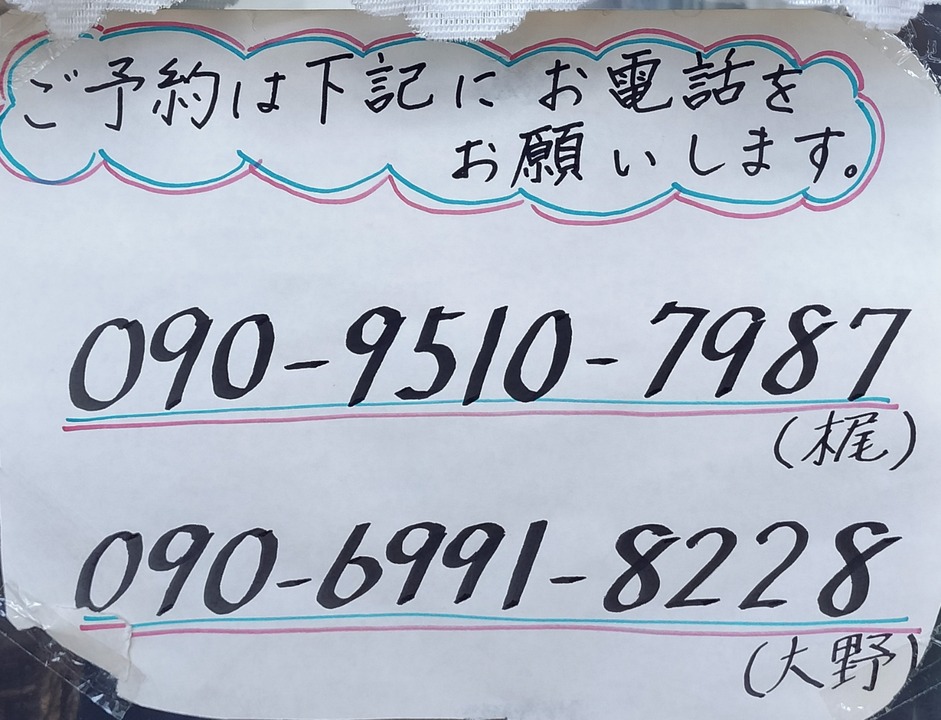 ご予約は下記にお電話を
お願いします。
090-9510-7987
(梶)
090-6991-8228
(大野)